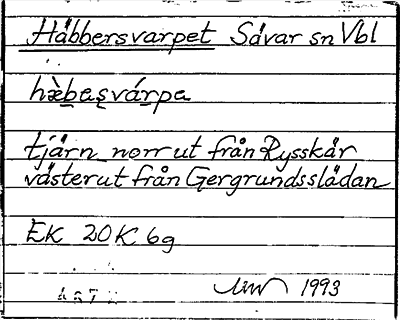 Häbbersvarpet Sävar sn Vbl
hæ̀bes̨várpe
tjärn norrut från Rysskär
västerut från Gergrundsslädan
EK 20K 6g
1993